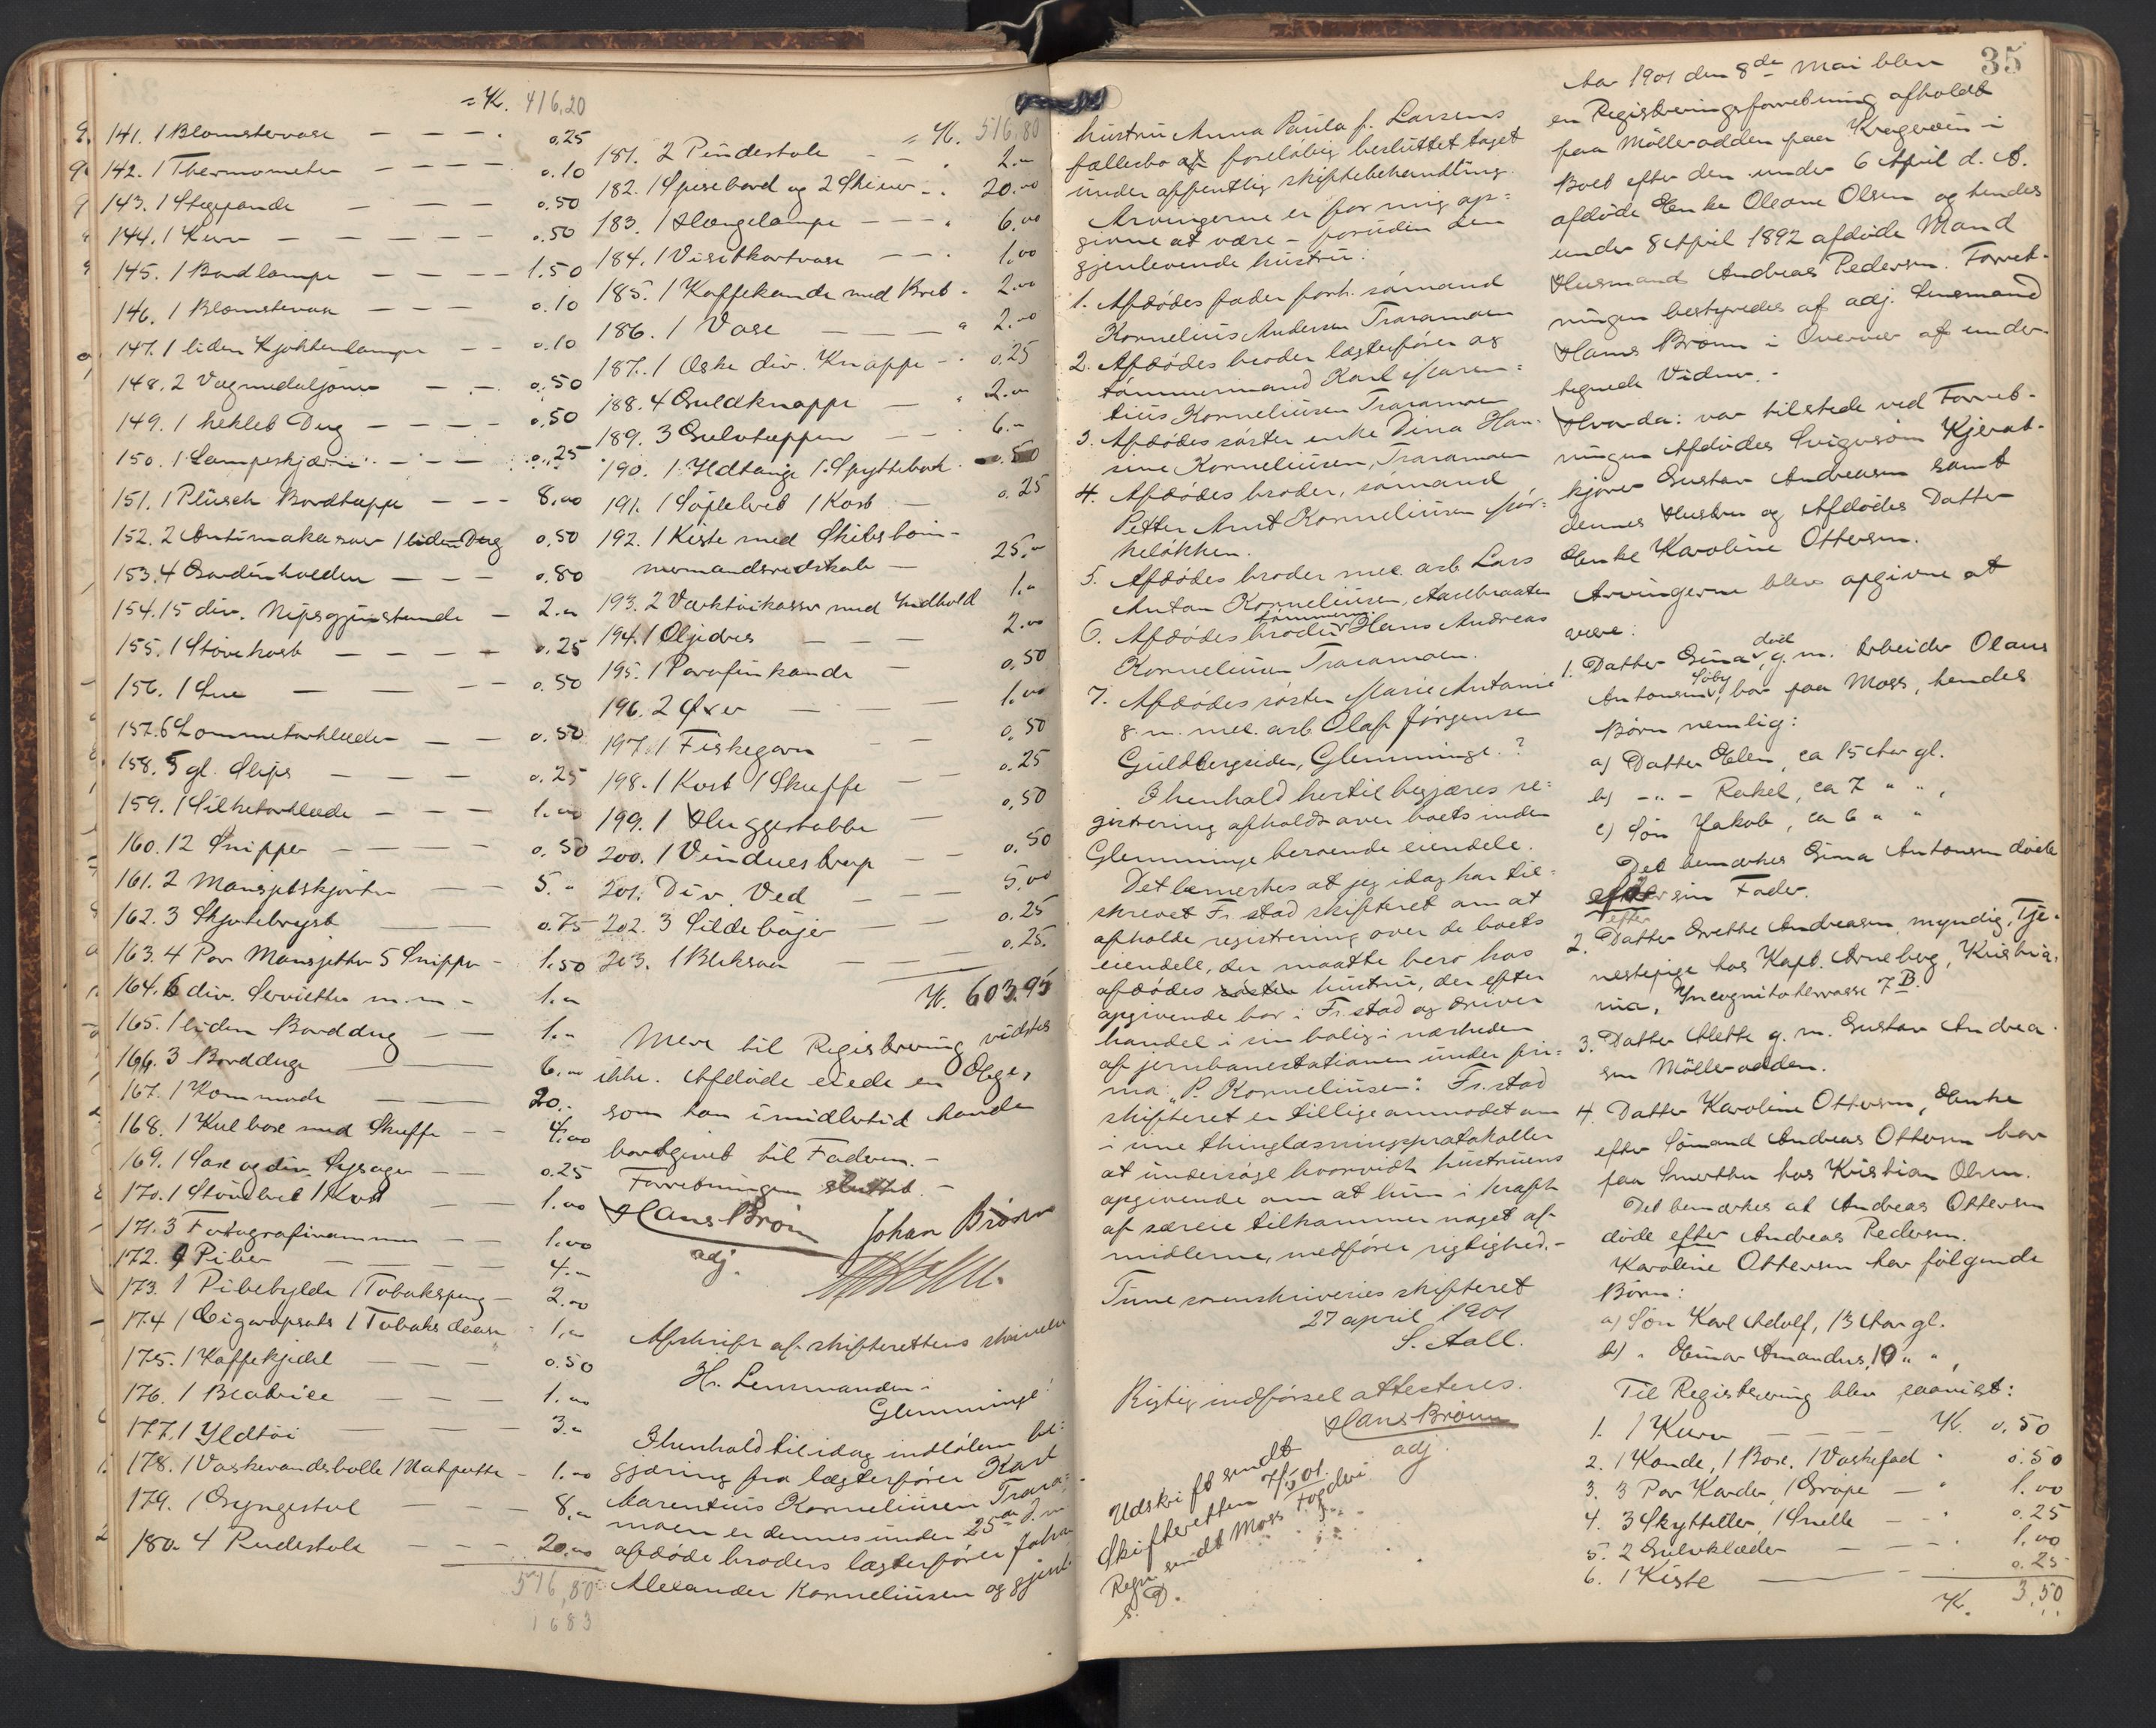 = Kr. 416,20
141. 1 Blomstervase — — — . 0,25
142. 1 Thermometer — — — — 0.10
143. 1 Stegepande — — — — 0.50
144. 1 Kurv — — — — — 0.50
145. 1 Bordlampe — — — — 1.50
146. 1 Blomstervase — — — 0.10
147. 1 liden Kjøkkenlampe — — 0.10
148. 2 Vægmedaljoner — — . 0,50
149. 1 heklet Dug — — — — 0,50
150. 1 Lampeskjærm — — — 0.25
151. 1 Plüsch Bordtæppe — — — 8,00
152. 2 Antimakasser 1 liden Dug 0,50
153. 4 Gardinholdere — — — 0.80
154. 15 div. Nipsgjenstande — 2.„
155. 1 Støvekost — — — — 0.25
156. 1 Sue — — — — 0.50
157. 6 Lommetørklæder — — 0.50
158. 5 gl. Slips — — — — 0.25
159. 1 Silketørklæde — — — 1.00
160. 12 Snipper — — — — 0.50
161. 2 Mansjetskjorter — — 5.„
162. 3 Skjortebryst — 0.75
163. 4 Par Mansjetter 5 Snipper — 1.50
164. 6 div. Servietter m.m — 1.„
165. 1 liden Borddug — — 1.„
166. 3 Bordduge — 6.„
167. 1 Kommode — 20.„
168. 1 Kulboxe med Skuffe — — 4.00
169. 1 Sax og div. Sysager — — 0.25
170. 1 Støvebret 1 Kost — — 1.00
171. 3 Fotografirammer — — 1.00
172. 4 Piber — — — — 4.„
173. 1 Pibehylde 1 Tobakspung — 2.00
174. 1 Cigaropsats 1 Tobaksdaase — 1.„
175. 1 Kaffekjedel — — — 0.50
176. 1 Blabriee — — — 1.00
177. 1 Ildtøi — — — — 3.„
178. 1 Vaskevandsbolle 1 Natpotte — 1.00
179. 1 Gyngestol — — — — 8.„
180. 4 Rudestole — — — — 20.00
516,80
1683
= Kr. 516,80
181. 2 Pindestole — — . 2.„
182. 1 Spisebord og 2 Skiver — . 20.00
183. 1 Hængelampe — — — . 6.00
184. 1 Visitkortvase — — . 1.00
185. 1 Kaffekande med Bret . 2.00
186. 1 Vase — — — „ 2.00
187. 1 Æske div. Knapper — . 0.25
188. 4 Guldknapper — „ 2.00
189. 3 Gulvtæpper — — . 6.„
190. 1 Ildtang 1 Spyttebak . 0.50
191. 1 Søplebret 1 Kost — 0.25
192. 1 Kiste med Skibstøm-
mermandsredskab — 25.„
193. 2 Værktøikasser med Indhold 1.„
194. 1 Oljedres — — — 2.00
195. 1 Parafinkande — 0.50
196. 2 Øxer — — — 1.00
197. 1 Fiskegarn — — 0,50
198. 1 Kost 1 Skuffe — — 0.25
199. 1 Huggestabbe — 0,50
200. 1 Vinduestrap — — 0.50
201. Div. Ved — — 5.00
202. 3 Sildebøjer — — 0.25
203. 1 Bliksaa — — — 0.25.
Kr. 603.95
Mere til Registrering vidstes
ikke. Afdøde eiede en Øger,
som han imidlertid havde
bortgivet til Faderen. —
Forretningen sluttet. —
Hans Brønn Johan Brosen
adj.
Afskrift af skifterettens skrivelse
Hr. Lensmanden i
Glemminge!
I henhold til idag indløben be-
gjæring fra lægterfører Karl
Marentius Korneliusen Trara-
moen er dennes under 25de d. m.
afdøde broders lægterfører Johan
Alexander Korneliusen og gjenl.
hustru Anna Paula f. Larsens
fællesbo foreløbig besluttet taget
under offentlig skiftebehandling.
Arvingerne er for mig op-
givne at være — foruden den
gjenlevende hustru:
1. Afdødes fader forh. sømand
Kornelius Andersen Traramoen
2. Afdødes broder lægterfører og
tømmermand Karl Maren-
tius Korneliusen Traramoen
3. Afdødes søster enke Dina Han-
sine Korneliusen, Traramoen
4. Afdødes broder, sømand
Petter Arnt Korneliusen Mør-
keløkken.
5. Afdødes broder mek. arb. Lars
Anton Korneliusen, Aasebraaten
6. Afdødes broder tømmerm. Hans Andreas
Korneliusen Traramoen.
7. Afdødes søster Marie Antonie
g. m. mek. arb. Olaf Jørgensen
Guldbergsiden, Glemminge. ?
I henhold hertil begjæres re-
gistrering afholdt over boets inden
Glemminge beroende eiendele.
Det bemerkes at jeg idag har til-
skrevet Fr. stad skifteret om at
afholde registrering over de boets
eiendele, der maatte bero hos
afdødes søster hustru, der efter
opgivende bor i Fr. stad og driver
handel i sin bolig i nærheden
af jernbanestationen under fir-
ma „P. Korneliusen". Fr. stad
skifteret er tillige anmodet om
i sine thinglæsningsprotokoller
at undersøge hvorvidt hustruens
opgivende om at hun i kraft
af særeie tilkommer noget af
midlerne, medfører rigtighed. —
Tune sorenskriveries skifteret
27 april 1901
S. Aall.
Rigtig indførsel attesteres.
Hans Brønn
adj.
Udskrift sendt
Skifteretten 7/5 01.
Regn. sendt Moss Fogderi
s. D.
35
Aar 1901 den 8de Mai blev
en Registreringsforretning afholdt
paa Møllerodden paa Kragerøen i
Boet efter den under 6 April d. A.
afdøde Enke Oleane Olsen og hendes
under 8 April 1892 afdøde Mand
Husmand Andreas Pedersen. Forret-
ningen bestyredes af adj. Lensmand
Hans Brønn i Overvær af under-
tegnede Vidner. -
Hvorda: var tilstede ved Forret-
ningen Afdødes Svigersøn Kjørat-
kjører Gustav Andreasen samt
dennes Hustru og Afdødes Datter
Enke Karoline Ottersen.
Arvingerne blev opgivne at
være:
1. Datter Gina, død g. m. Arbeider Olaus
Antonsen Søby, bor paa Moss, hendes
Børn nemlig:
a) Datter Elen, ca 15 Aar gl.
b) -„- Rakel, ca 7 „ „,
c) Søn Jakob, ca 6 „ „
Det bemærkes Gina Antonsen døde
efter sin Fader.
efter
2. Datter Grethe Andreasen, myndig, Tje-
nestepige hos Kapt. Arneberg, Kristia-
nia, Incognitoterrasse 7 B.
3. Datter Alette g. m. Gustav Andrea-
sen Møllerodden.
4. Datter Karoline Ottersen, Enke
efter Sømand Andreas Ottersen bor
paa Smertu hos Kristian Olsen.
Det bemærkes at Andreas Ottersen
døde efter Andreas Pedersen.
Karoline Ottersen har følgende
Børn:
a) Søn Karl Adolf, 13 Aar gl.
b) „ Einar Amandus, 10 „ „,
Til Registrering blev paavist:
1. 1 Kurv — — — Kr. 0,50
2. 1 Kande, 1 Boxe, 1 Vaskefad . 0.50
3. 3 Par Karder, 1 Gryte — „ 1.00
4. 3 Skytteller, 1 Snelle — — „ 0.25
5. 2 Gulvklæder — — — . 1.00
6. 1 Kiste — — 0.25
Kr. 3,50